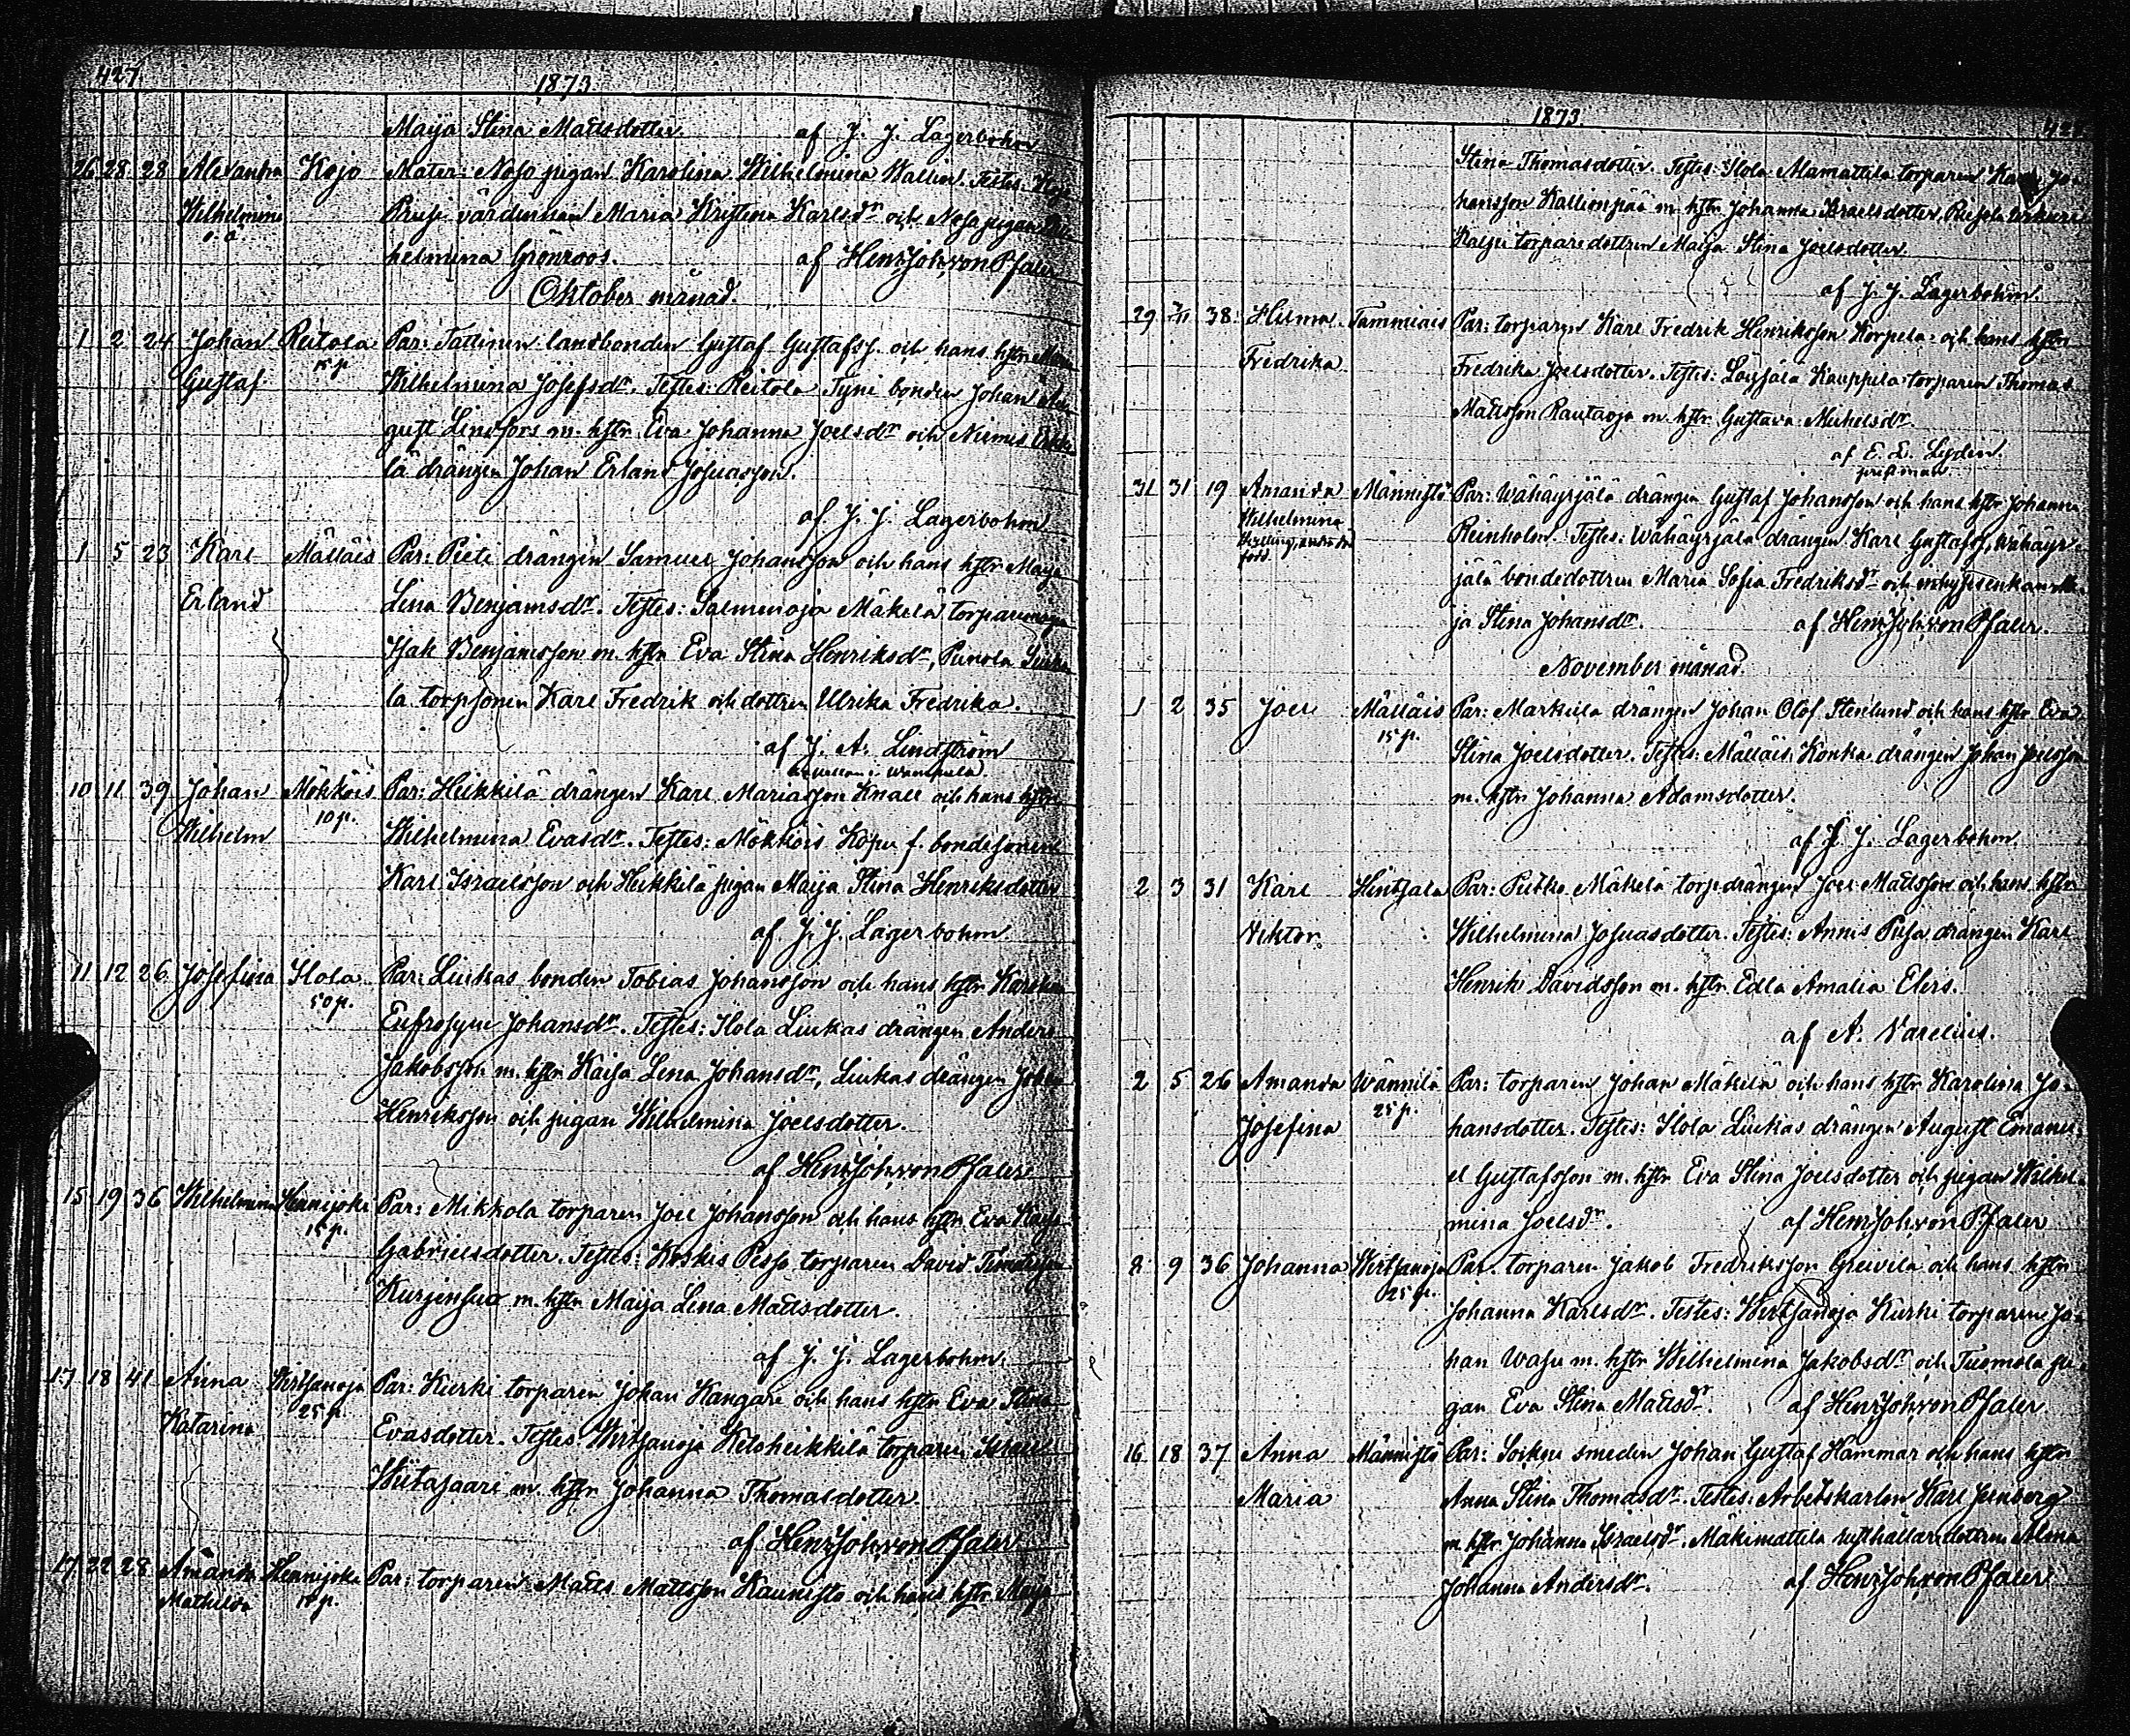 427.
1873.
Maija Stina Mattsdotter. af J. J. Lagerbohm
26 28 28 Alexandra Kojo Mater: Noso pigan Karolina Wilhelmina Wallin. Testes: Kojo
Wilhelmina Prusi värdinnan Maria Kristina Karlsdr och Noso pigan
o. ä. helmina Grönroos. af Henr. Joh. von Pfaler
Oktober månad.
1 2 24 Johan Reitola Par: Tattinen landbonden Gustaf Gustafss. och hans hstr
15 p.
Gustaf Wilhelmina Josefsdr. Testes: Reitola Tyni bonden Johan Au-
gust Lindfors m. hstr Eva Johanna Joelsdr och Niemis
lä drängen Johan Erland Josuasson.
af J. J. Lagerbohm
1 5 23 Karl Mälläis Par: Pieti drängen Samuel Johansson och hans hstr Maija
Erland Lena Benjamsdr. Testes: Salmenoja Mäkelä torparemågen
Isak Benjamsson m. hstr Eva Stina Henriksdr, Punola
la torpsonen Karl Fredrik och dottren Ulrika Fredrika.
af J. A. Lindström
kapellan i Wampula.
10 11 39 Johan Mökköis Par: Heikkilä drängen Karl Mariasson Knall och hans hstr
10 p.
Wilhelm Wilhelmina Evasdr. Testes: Mökköis Köpu f. bondesonen
Karl Israelsson och Heikkilä pigan Maija Stina Henriksdotter
af J. J. Lagerbohm.
11 12 26 Josefina Ilola Par: Liukas bonden Tobias Johansson och hans hstr Karolina
50 p.
Eufrosyne Johansdr. Testes: Ilola Liukas drängen Anders
Jakobsson m. hstr Kaisa Lena Johansdr, Liukas drängen Johan
Henriksson och pigan Wilhelmina Joelsdotter.
af Henr. Joh. von Pfaler
15 19 36 Wilhelmina Hennijoki Par: Mikkola torparen Joel Johansson och hans hstr Eva Kaisa
15 p.
Gabrielsdotter. Testes: Koskis Pesso torparen David
Kurjensuo m. hstr Maija Lena Mattsdotter.
af J. J. Lagerbohm.
17 18 41 Anna Wirtsanoja Par: Kurki torparen Johan Kangare och hans hstr Eva Stina
25 p.
Katarina Evasdotter. Testes: Wirtsanoja Weloheikkilä torparen Israel
Wiitasaari m. hstr Johanna Thomasdotter.
af Henr. Joh. von Pfaler
17 22 28 Amanda Hennijoki Par: torparen Matts Mattsson Kaunisto och hans hstr Maija
Mathilda
1873.
Stina Thomasdotter. Testes: Ilola Mamattila torparen Karl Jo-
hansson Kallionpää m. hstr Johanna Israelsdotter,
Kalsu torparedottren Maija Stina Joelsdotter.
af J. J. Lagerbohm.
29 38 Hilma Tammiais Par: torparen Karl Fredrik Henriksson Korpela och hans hstr
Fredrika Fredrika Joelsdotter. Testes: Lausala Kauppela torparen Thomas
Mattsson Rautaoja m. hstr Gustava Michelsdr.
af E. E. Lydén.
prestman.
31 31 19 Amanda Männistö Par: Wähäyrjälä drängen Gustaf Johansson och hans hstr Johanna
Wilhelmina Reinholm. Testes: Wähäyrjälä drängen Karl Gustafss, Wähäyr-
jälä bondedottren Maria Sofia Fredriksdr och inhysesenkan Ma-
ja Stina Johansdr. af Henr. Joh. von Pfaler.
November månad.
1 2 35 Joel Mälläis Par: Markula drängen Johan Olof Stenlund och hans hstr Eva
15 p.
Stina Joelsdotter. Testes: Mälläis Konka drängen Johan Joelsson
m. hstr Johanna Adamsdotter.
af J. J. Lagerbohm.
2 3 31 Karl Hintsala Par: Pietko Mäkelä torpdrängen Joel Mattsson och hans hstr
Viktor Wilhelmina Josuasdotter. Testes: Annis Pusa drängen Karl
Henrik Davidsson m. hstr Edla Amalia Elers.
af A. Varelius.
2 5 26 Amanda Wännilä Par: torparen Johan Mäkilä och hans hstr Karolina Jo-
25 p.
Josefina hansdotter. Testes: Ilola Liukas drängen August Emanu-
el Gustafsson m. hstr Eva Stina Joelsdotter och pigan Wilhel-
mina Joelsdr. af Henr. Joh. von Pfaler
8 9 36 Johanna Wirtsanoja Par: torparen Jakob Fredriksson Greivilä och hans hstr
25 p.
Johanna Karlsdr. Testes: Wirtsanoja Kurki torparen Jo-
han Wasu m. hstr Wilhelmina Jakobsdr och Tuomola pi-
gan Eva Stina Mattsdr. af Henr. Joh. von Pfaler
16 18 37 Anna Männistö Par: Soiku smeden Johan Gustaf Hammar och hans hstr
Maria Anna Stina Thomasdr. Testes: Arbetskarlen Karl Jernberg
m. hstr Johanna Israelsdr. Mäkimattila rusthållaredottren Alma
Johanna Andersdr. af Henr. Joh. von Pfaler